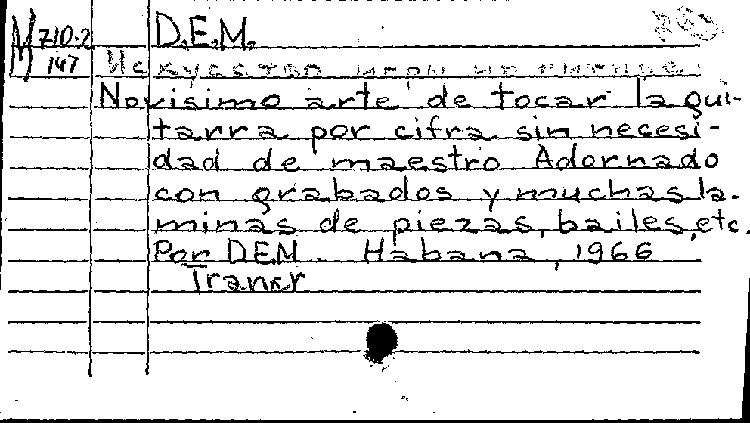 M 710-2 D.E.M.
147 Искусство игры на гитаре.
Novisimo arte de tocar la gui-
tarra por cifra sin necesi-
dad de maestro Adornado
con grabados y muchas la-
minas de piezas, bailes, etc.
Por DEM. Habana, 1966